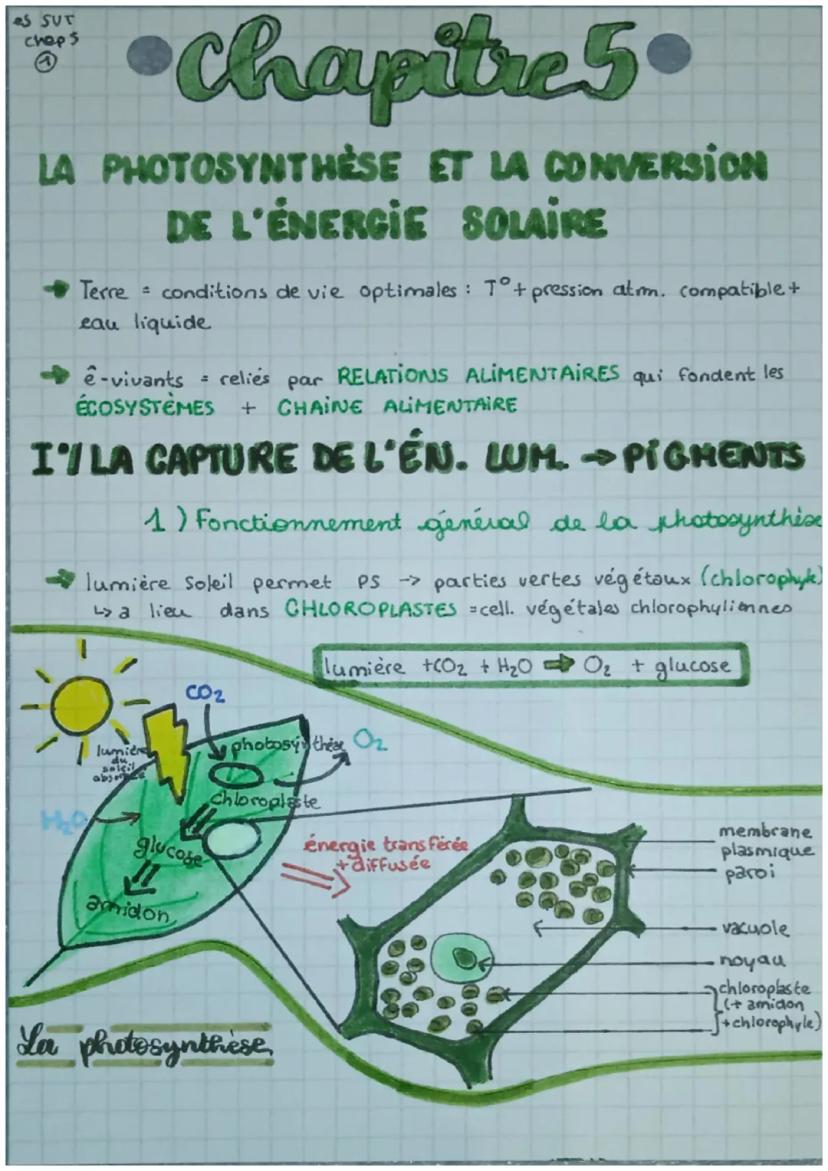 es SVT
chap 5
1
Chapitre 5
LA PHOTOSYNTHÈSE ET LA CONVERSION
DE L'ÉNERGIE SOLAIRE
➔ Terre = conditions de vie optimales : T° + pression atm. compatible +
eau liquide
➔ ê-vivants = reliés par RELATIONS ALIMENTAIRES qui fondent les
ÉCOSYSTÈMES + CHAINE ALIMENTAIRE
I°/ LA CAPTURE DE L'ÉN. LUM. → PIGMENTS
1) Fonctionnement général de la photosynthèse
➔ lumière Soleil permet PS -> parties vertes végétaux (chlorophyle)
↳ a lieu dans CHLOROPLASTES = cell. végétales chlorophyliennes
lumière + CO2 + H2O ➔ O2 + glucose
CO2
lumière
du
soleil
absorbée
photosynthèse
O2
chloroplaste
H2O
glucose
amidon
énergie transférée
+ diffusée
membrane
plasmique
paroi
vacuole
noyau
chloroplaste
(+ amidon
+ chlorophyle)
La photosynthèse